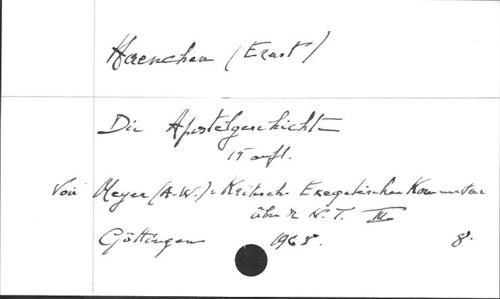 Haenchen (Ernst)
Die Apostelgeschichte
15 aufl.
Voir Meyer (H.-W.): Kritisch-Exegetischer Kommentar
über d. N.T. III
Göttingen 1965. 8.